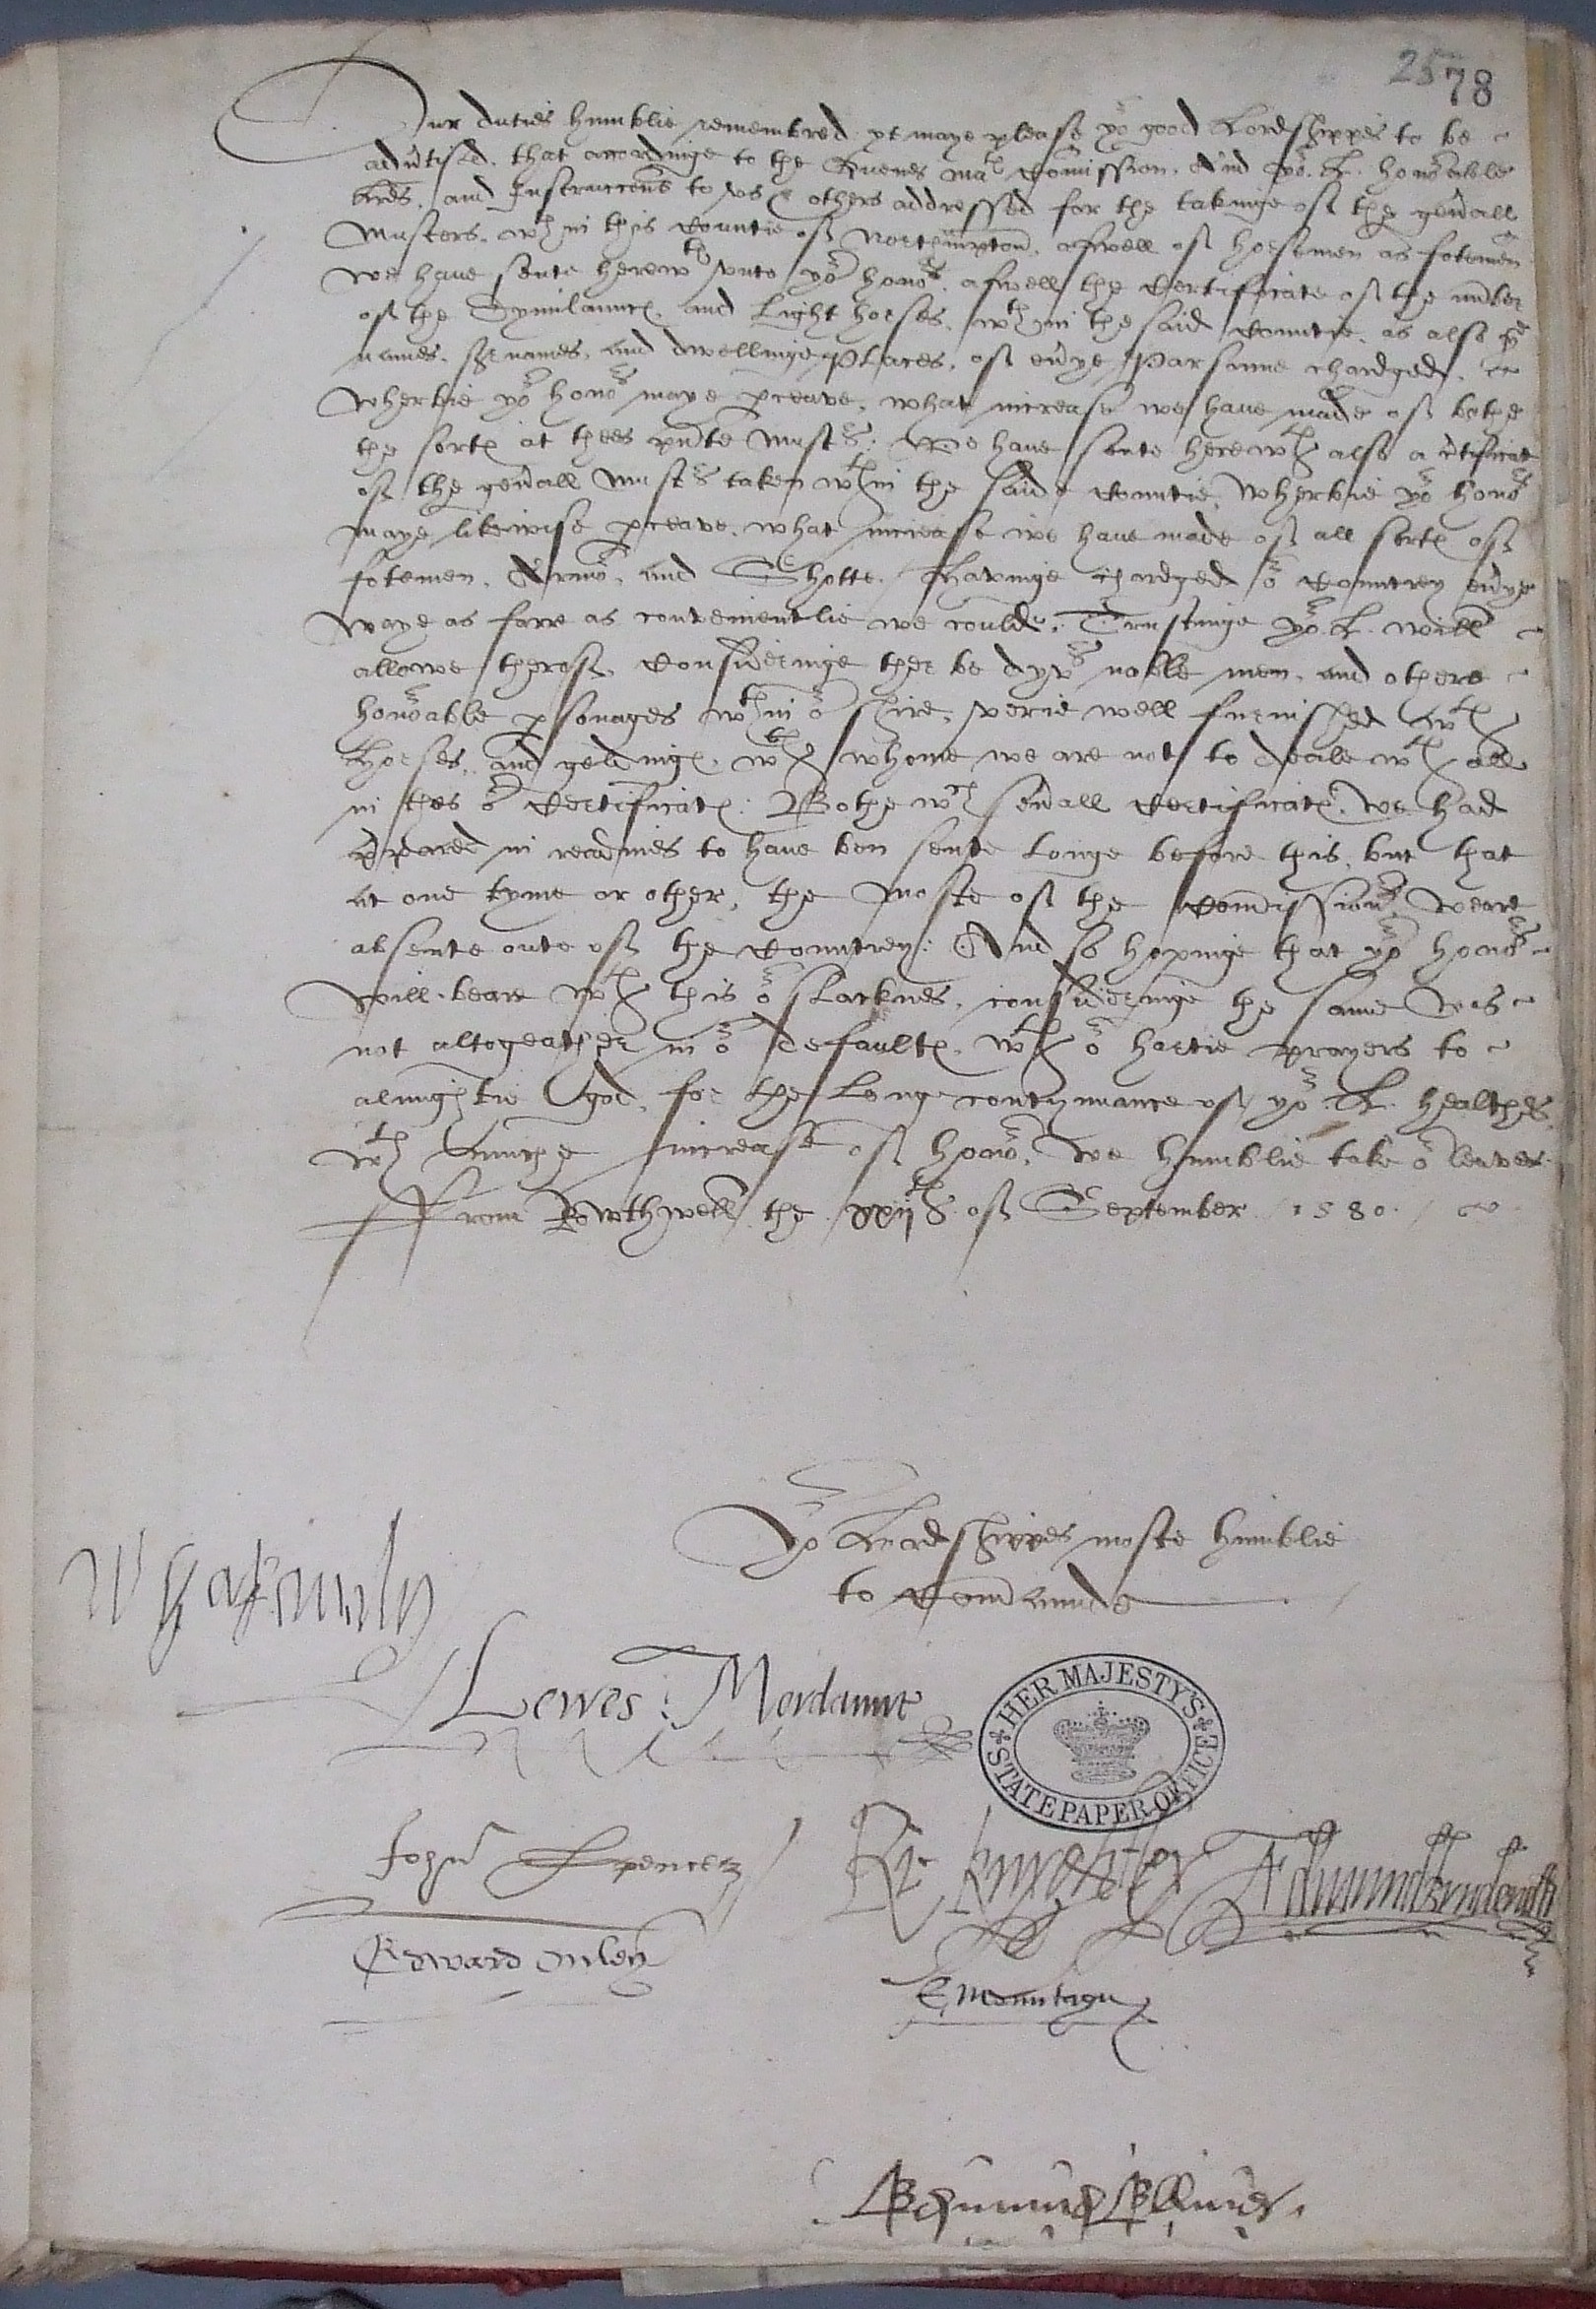 25
78
Our duties humblie remembred. yt maye please yor good Lordshippes to be
advtised. that accordinge to the Quenes mats Comission. And yor. L. honorable
lres. and Instruccons to vs & others addressed for the takinge of the genall
Musters. wthin this Countie of Northampton. aswell of horsemen as fotemen
we have sente herewth vnto yor honors. aswell the Certificate of the nmber
of the Dymilaunces. and Light horses. wthin the said Countie. as also ye
names. surnames. and dwellinge Places. of evrye Parsonne chardged.
wherbie yor honors maye pceave. what increase we have made of bothe
the sortes at thees pnte Musters: We have sente herewth also a ctificat
of the genall Musters taken wthin the saide Countie. Wherbie yor honors
maye likewise pceave. what increase we have made of all sortes of
fotemen. Armor. and Shotte. Havinge chardged or Countrey evrye
waye as farre as convenientlie we coulde. Trustinge yor. L. will
allowe therof. Consideringe ther be dyvrs noble men. and others
honorable psonages wthin or shire. verie well furnished wth
Horses. and geldinges. wth whome we are not to deale wth all
in thes or Certificates: Bothe wch sevall Certificates. we had
ppared in readines to have ben sente longe before this. but that
at one tyme or other. the moste of the Comissioners weare
absente oute of the Countrey: And so hopinge that yor honors
will beare wth this or slacknes. consideringe the same was
not altogeather in or defaultes. wth or hartie prayers to
almightie god. for the longe contynuance of yor. L. healthes.
wth muche increase of honor. We humblie take or leaves.
From Rowthwell the xxijth of September 1580.
Yor Lordshippes moste humblie
to Comaunde
Lewes: Mordaunt
HER MAJESTY'S STATE PAPER OFFICE
John Spencer Ry: knyghtley Edmund Brudenell
Edward Onley
E Mountagu